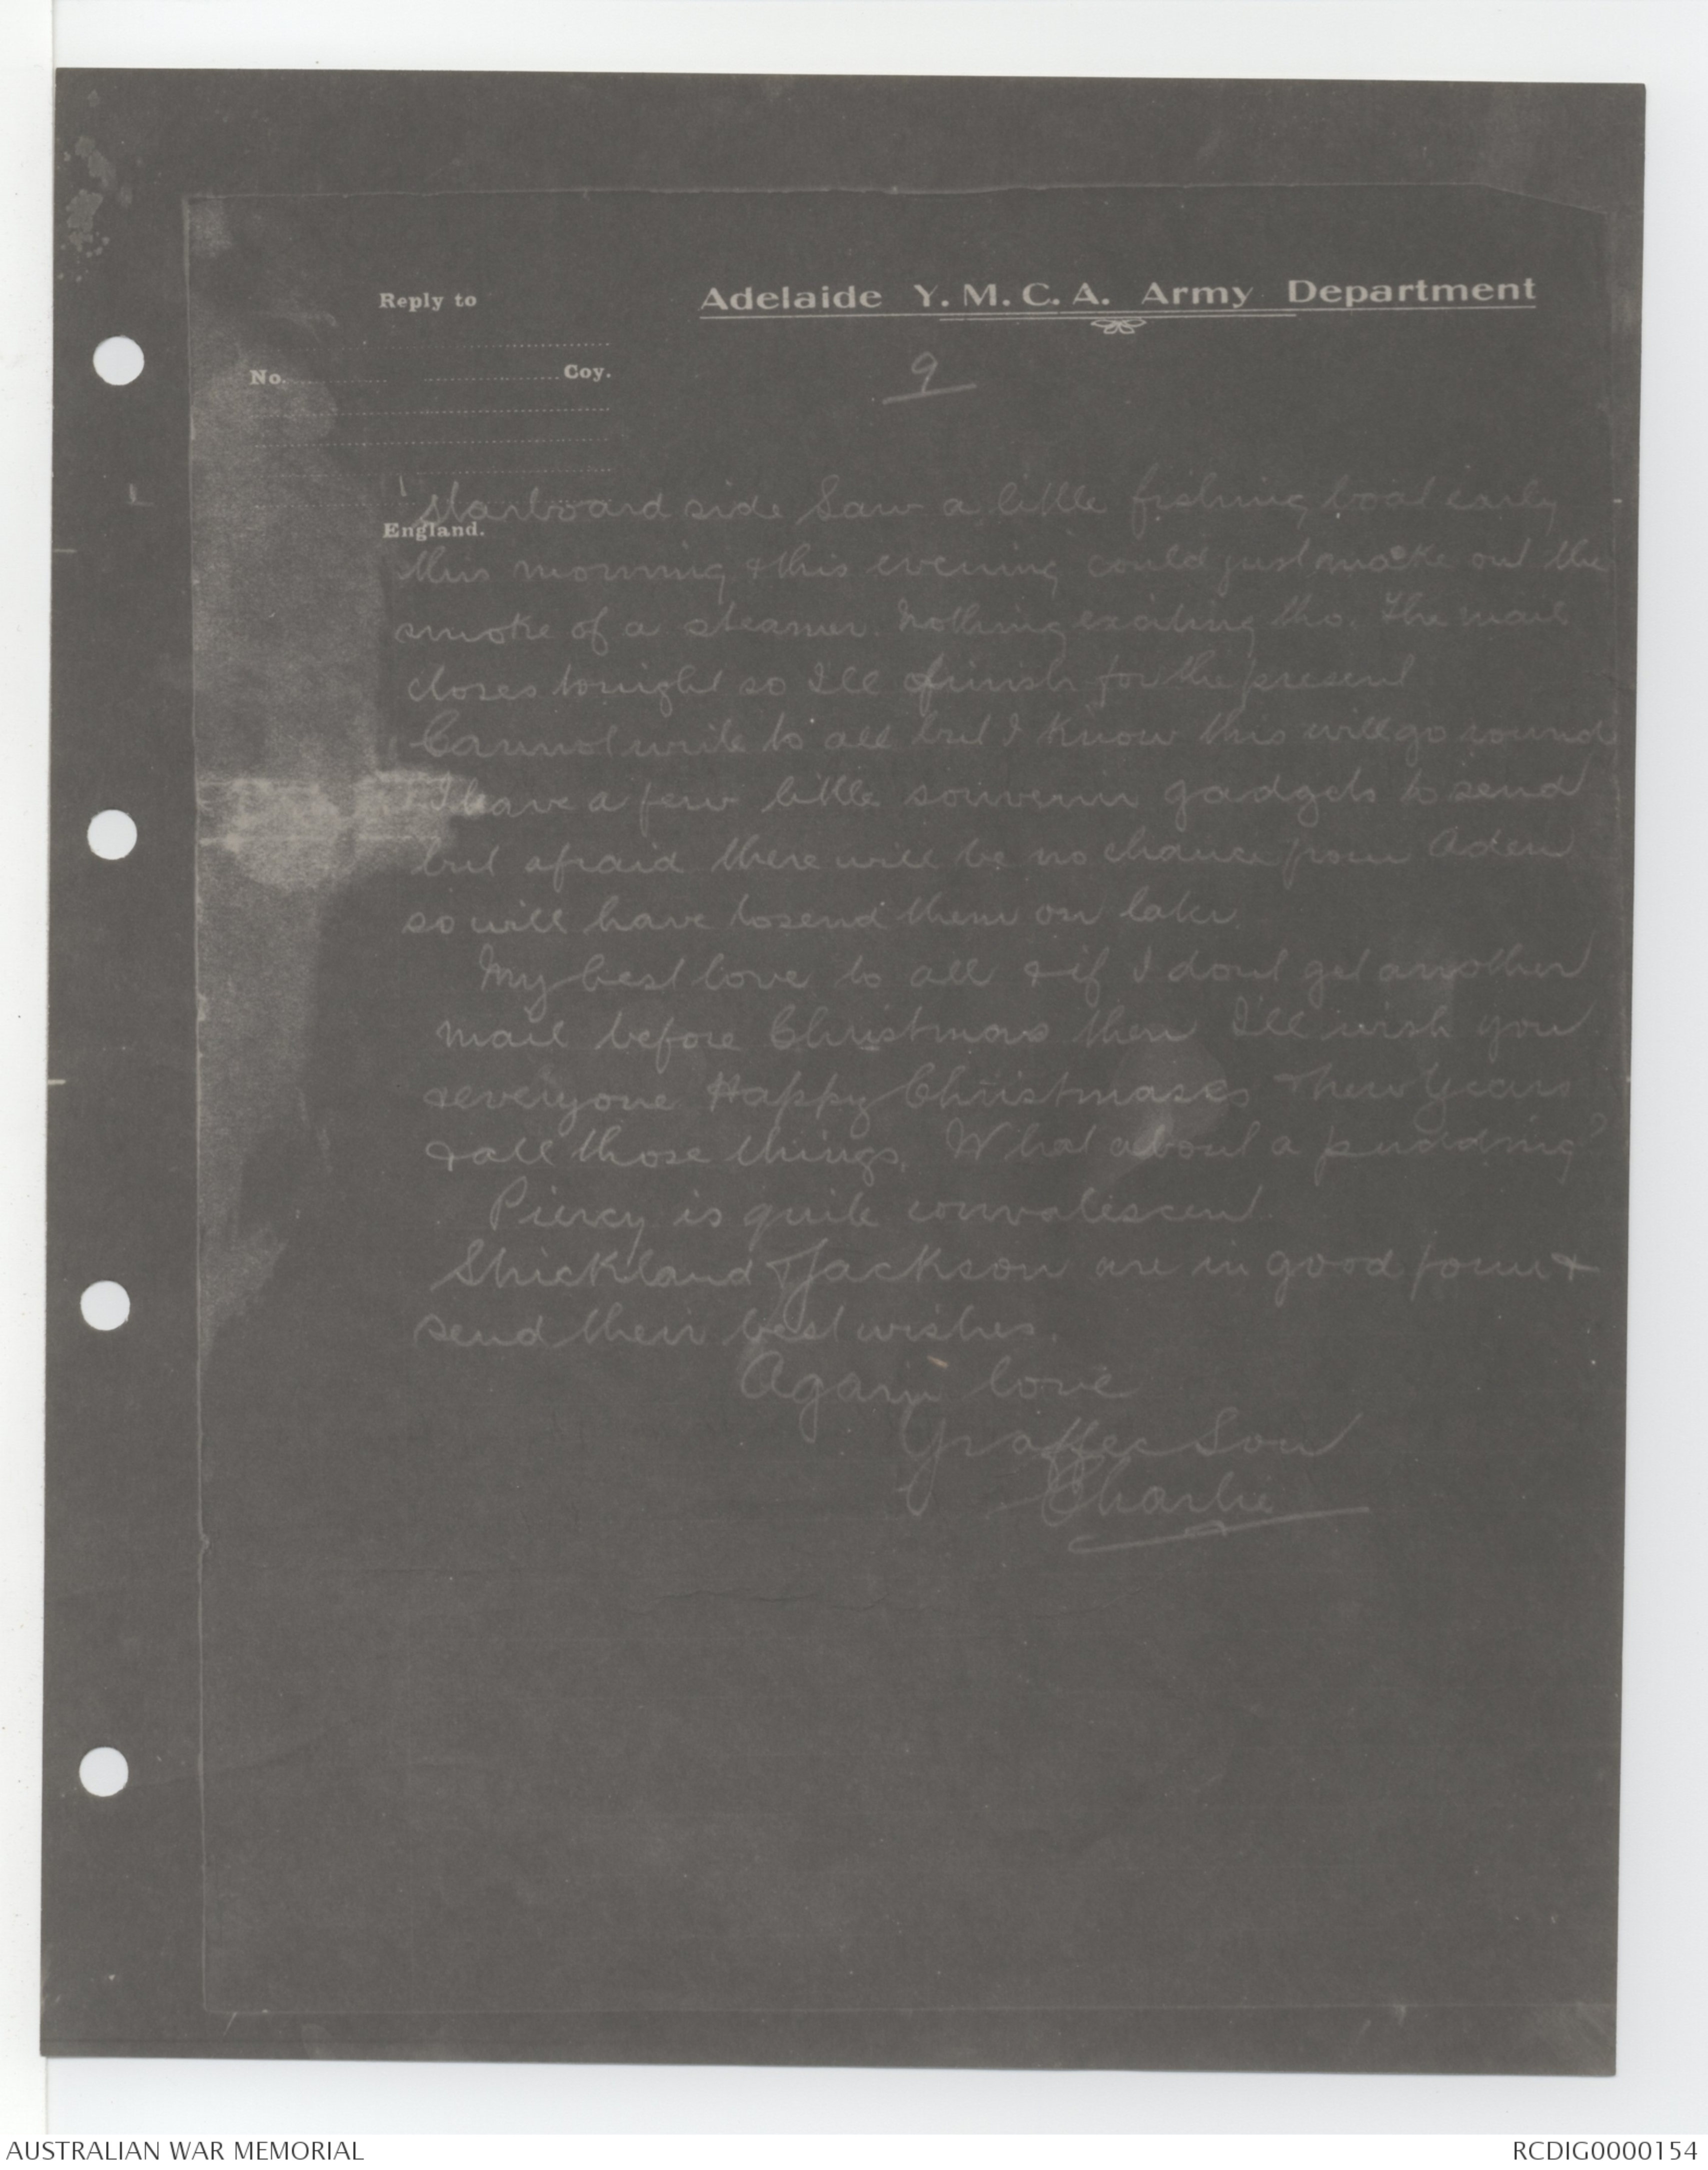 Reply to
Adelaide Y. M. C. A. Army Department
No. Coy.
9
England.
starboard side Saw a little fishing boat early
this morning & this evening could just make out the
smoke of a steamer. Nothing exciting tho. The mail
closes tonight so I'll finish for the present
Cannot write to all but I know this will go round
I have a few little souvenir gadgets to send
but afraid there will be no chance from Aden
so will have to send them on later.
My best love to all & if I dont get another
mail before Christmas then I'll wish you
& everyone Happy Christmases & New Years
& all those things. What about a pudding?
Piercy is quite convalescent.
Strickland & Jackson are in good form &
send their best wishes.
Again love
Yr affec Son
Charlie
AUSTRALIAN WAR MEMORIAL
RCDIG0000154